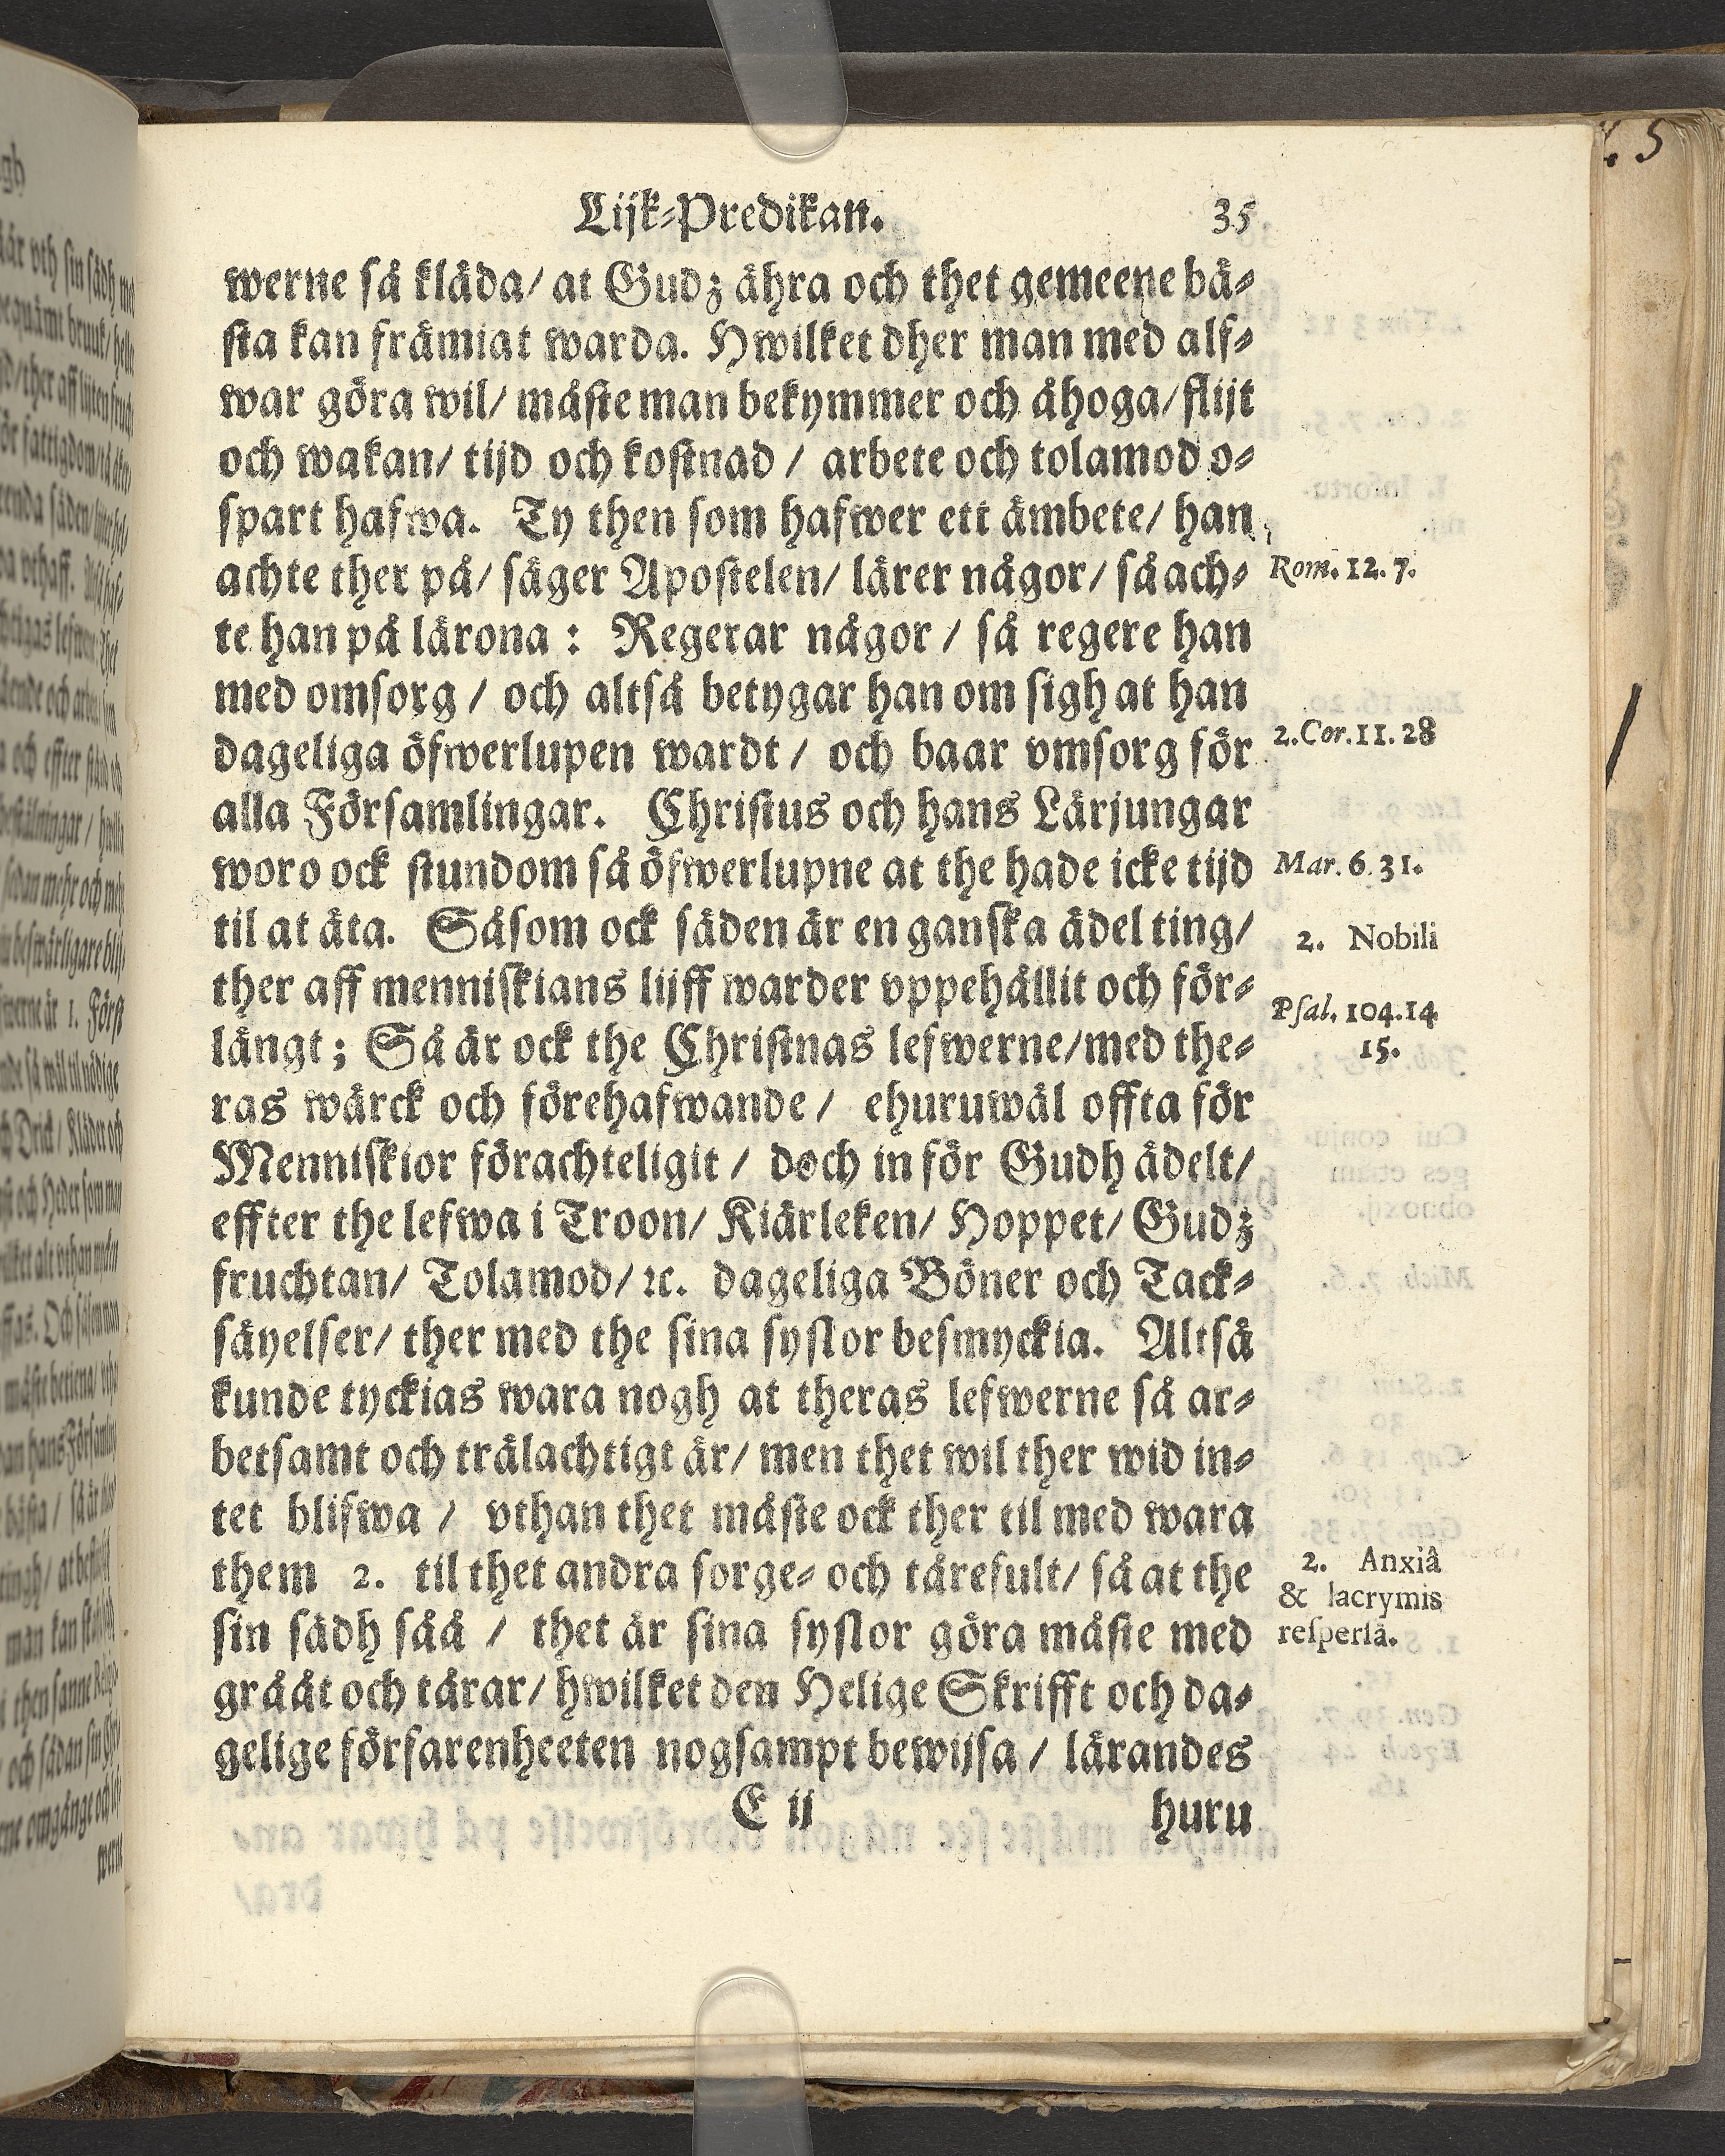 Lijk-Predikan. 35
werne så kläda/ at Gudz ähra och thet gemeene bä-
sta kan främiat warda. Hwilket dher man med alf-
war göra wil/ måste man bekymmer och åhoga/ flijt
och wakan/ tijd och kostnad / arbete och tolamod o-
spart hafwa. Ty then som hafwer ett ämbete/ han
achte ther på/ säger Apostelen/ lärer någor/ så ach-
Rom. 12. 7.
te han på lärona : Regerar någor / så regere han
med omsorg / och altså betygar han om sigh at han
dageliga öfwerlupen wardt / och baar omsorg för
2.Cor.11. 28
alla Församlingar. Christus och hans Lärjungar
woro ock stundom så öfwerlupne at the hade icke tijd
Mar. 6. 31.
til at äta. Såsom ock säden är en ganska ädel ting/
2. Nobili
ther aff menniskians lijff warder vppehållit och för-
Psal. 104.14
15.
längt ; Så är ock the Christnas lefwerne/med the-
ras wärck och förehafwande / ehuruwäl offta för
Menniskior förachteligit / doch in för Gudh ädelt/
effter the lefwa i Troon/ Kiärleken/ Hoppet/ Gudz
fruchtan/ Tolamod/ ꝛc. dageliga Böner och Tack-
säyelser/ ther med the sina syslor besmyckia. Altså
kunde tyckias wara nogh at theras lefwerne så ar-
betsamt och trälachtigt är/ men thet wil ther wid in-
tet blifwa / vthan thet måste ock ther til med wara
them 2. til thet andra sorge- och tårefult/ så at the
2. Anxiâ
& lacrymis
respersâ.
sin sädh såå / thet är sina syslor göra måste med
grååt och tårar/ hwilket den Helige Skrifft och da-
gelige förfarenheeten nogsampt bewijsa / lärandes
E ij huru